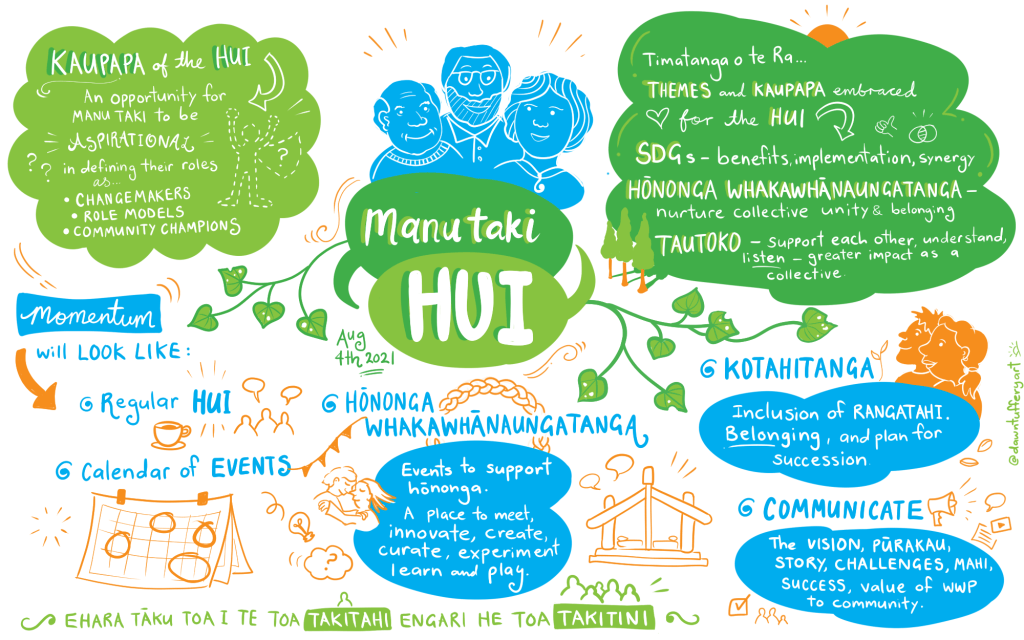 KAUPAPA of the HUI
An opportunity for
MANU TAKI to be
ASPIRATIONAL
in defining their roles
as...
• CHANGEMAKERS
• ROLE MODELS
• COMMUNITY CHAMPIONS
? ?
?
Manu taki
HUI
Aug
4th 2021
Timatanga o te Ra...
THEMES and KAUPAPA embraced
for the HUI
SDGs – benefits, implementation, synergy
HŌNONGA WHAKAWHĀNAUNGATANGA –
nurture collective unity & belonging
TAUTOKO – support each other, understand,
listen – greater impact as a
collective.
Momentum
will LOOK LIKE:
Regular HUI
Calendar of EVENTS
HŌNONGA
WHAKAWHĀNAUNGATANGA
Events to support
hōnonga.
A place to meet,
innovate, create,
curate, experiment
learn and play.
?
KOTAHITANGA
Inclusion of RANGATAHI.
Belonging, and plan for
succession.
COMMUNICATE
The VISION, PŪRAKAU,
STORY, CHALLENGES, MAHI,
SUCCESS, value of WWP
to community.
EHARA TĀKU TOA I TE TOA TAKITAHI ENGARI HE TOA TAKITINI
@dawntufferyart